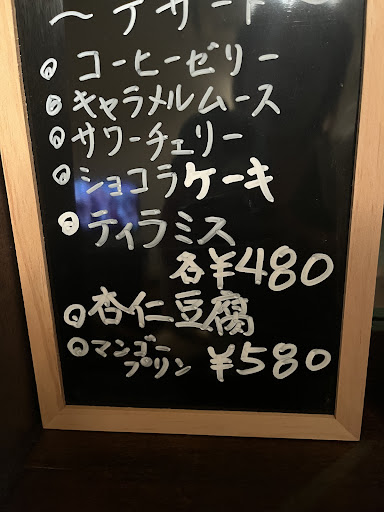 〜デザート
◎コーヒーゼリー
◎キャラメルムース
◎サワーチェリー
◎ショコラケーキ
◎ティラミス
各¥480
◎杏仁豆腐
◎マンゴー
プリン ¥580